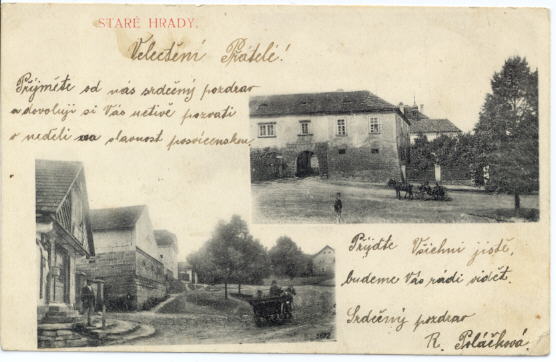 STARÉ HRADY.
Velectění Přátelé!
Přijměte od nás srdečný pozdrav
a dovoluji si Vás uctivě pozvati
v neděli na slavnost posvícensku.
Přijďte Všichni jistě,
budeme Vás rádi vidět.
Srdečný pozdrav
R. Poláčková.